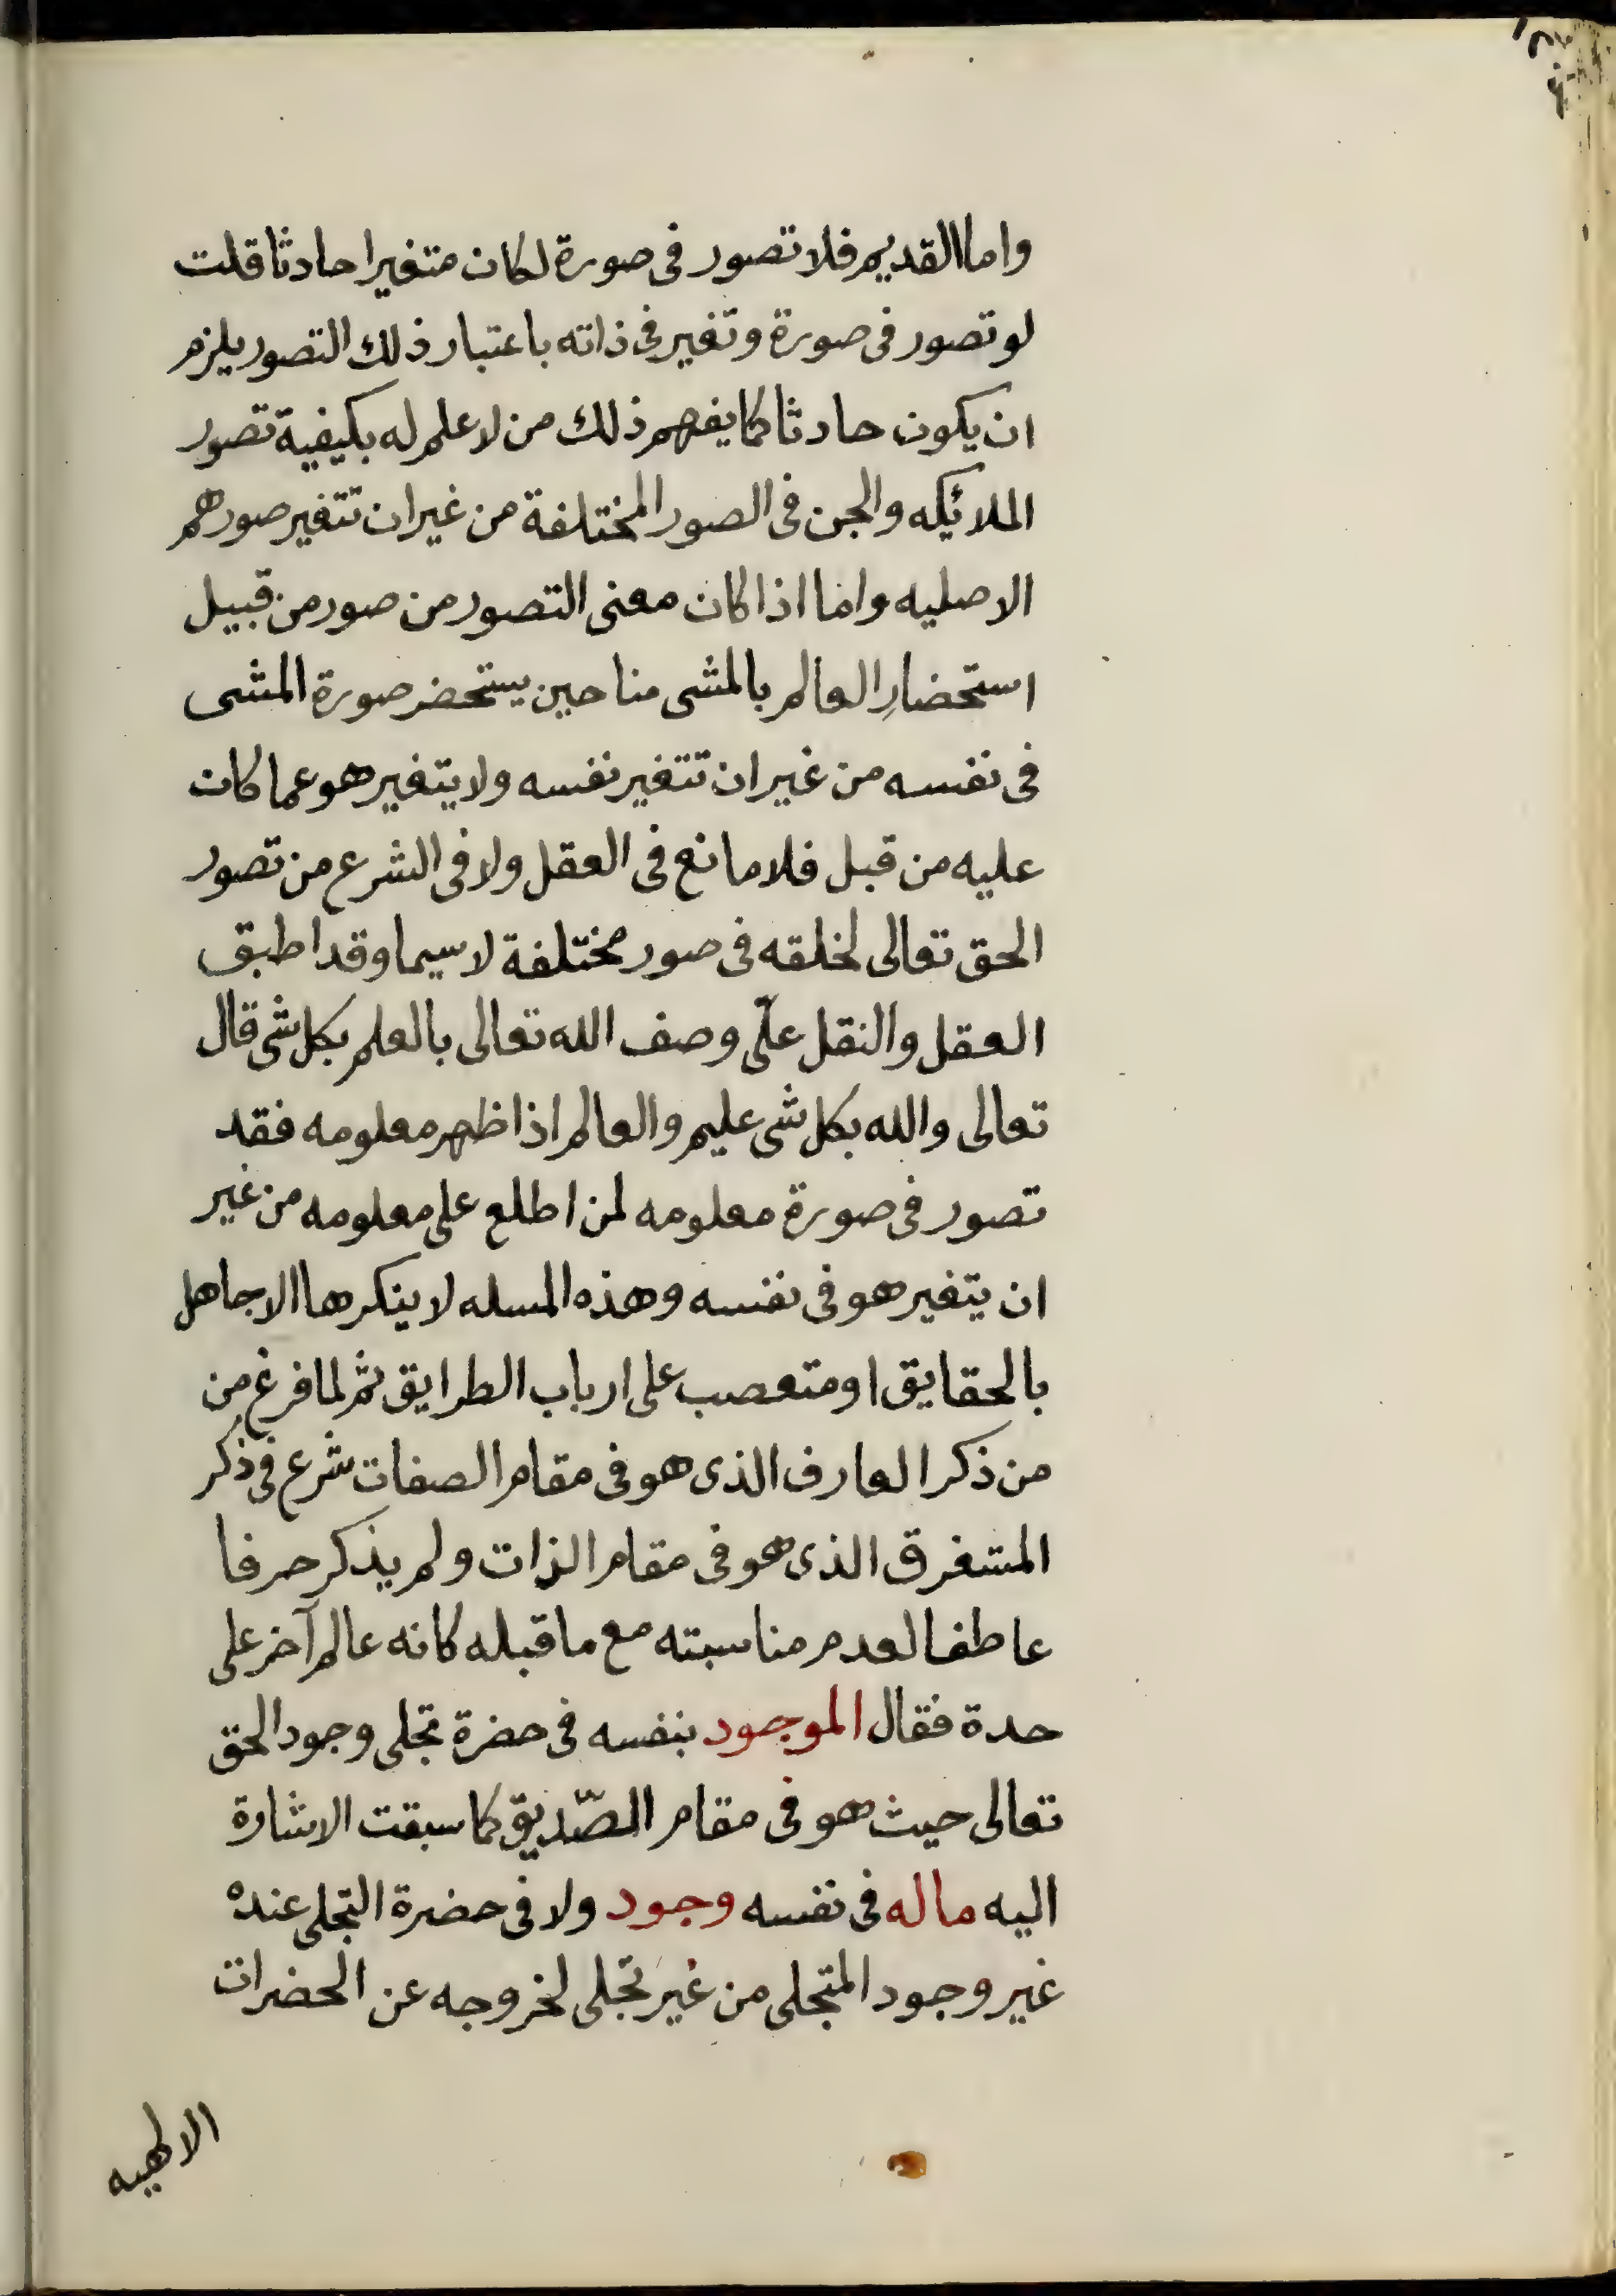 واما القديم فلا تصور فى صورة لكان متغيرا حادثا قلت
لو تصور فى صورة وتغير فى ذاته باعتبار ذلك التصور يلزم
ان يكون حادثا كما يفهم ذلك من لا علم له بكيفية تصور
الملائكه والجن فى الصور المختلفة من غير ان تتغير صورهم
الاصليه واما اذا كان معنى التصور من صور من قبيل
استحضارِ العالم بالمشى منا حين يستحضر صورة المشى
فى نفسه من غير ان تتغير نفسه ولا يتغير هو عما كان
عليه من قبل فلا مانع فى العقل ولا فى الشرع من تصور
الحق تعالى لخلقه فى صور مختلفة لا سيما وقد اطبق
العقل والنقل على وصف الله تعالى بالعلم بكل شى قال
تعالى والله بكل شى عليم والعالم اذا ظهر معلومه فقد
تصور فى صورة معلومه لمن اطلع على معلومه من غير
ان يتغير هو فى نفسه وهذه المسله لا ينكرها الا جاهل
بالحقايق او متعصب على ارباب الطرايق ثم لما فرغ من
من ذكر العارف الذى هو فى مقام الصفات شرع فى ذكر
المستغرق الذى هو فى مقام الذات ولم يذكر حرفا
عاطفا لعدم مناسبته مع ما قبله كانه عالم آخر على
حدة فقال الموجود بنفسه فى حضرة تجلى وجود الحق
تعالى حيث هو فى مقام الصّديق كما سبقت الاشارة
اليه ما له فى نفسه وجود ولا فى حضرة التجلى عنده
غير وجود المتجلى من غير تجلى لخروجه عن الحضرات
الالهيه